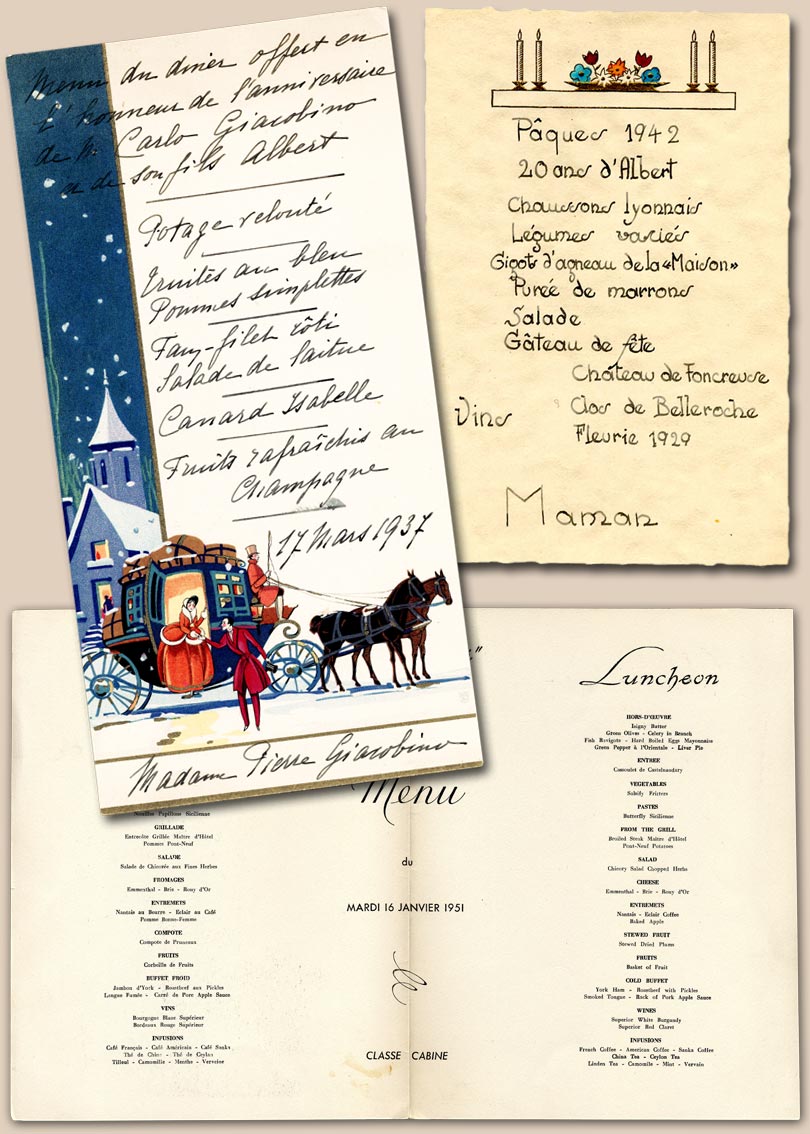 Menu du dîner offert en
l'honneur de l'anniversaire
de M. Carlo Giacobino
et de son fils Albert
Potage velouté
Truites au bleu
Pommes simplettes
Faux-filet rôti
Salade de laitue
Canard Isabelle
Fruits rafraîchis au
Champagne
17 Mars 1937
Madame Pierre Giacobino
Pâques 1942
20 ans d'Albert
Chaussons lyonnais
Légumes variés
Gigot d'agneau de la «Maison»
Purée de marrons
Salade
Gâteau de fête
Château de Foncreuse
Vins Clos de Belleroche
Fleurie 1929
Maman
Nouilles Papillons Sicilienne
GRILLADE
Entrecôte Grillée Maître d'Hôtel
Pommes Pont-Neuf
SALADE
Salade de Chicorée aux Fines Herbes
FROMAGES
Emmenthal - Brie - Rouy d'Or
ENTREMETS
Nantais au Beurre - Eclair au Café
Pomme Bonne-Femme
COMPOTE
Compote de Pruneaux
FRUITS
Corbeille de Fruits
BUFFET FROID
Jambon d'York - Roastbeef aux Pickles
Langue Fumée - Carré de Porc Apple Sauce
VINS
Bourgogne Blanc Supérieur
Bordeaux Rouge Supérieur
INFUSIONS
Café Français - Café Américain - Café Sanka
Thé de Chine - Thé de Ceylan
Tilleul - Camomille - Menthe - Verveine
Menu
du
MARDI 16 JANVIER 1951
CLASSE CABINE
Luncheon
HORS-D'ŒUVRE
Isigny Butter
Green Olives - Celery in Branch
Fish Ravigote - Hard Boiled Eggs Mayonnaise
Green Pepper à l'Orientale - Liver Pie
ENTREE
Cassoulet de Castelnaudary
VEGETABLES
Salsify Fritters
PASTES
Butterfly Sicilienne
FROM THE GRILL
Broiled Steak Maître d'Hôtel
Pont-Neuf Potatoes
SALAD
Chicory Salad Chopped Herbs
CHEESE
Emmenthal - Brie - Rouy d'Or
ENTREMETS
Nantais - Eclair Coffee
Baked Apple
STEWED FRUIT
Stewed Dried Plums
FRUITS
Basket of Fruit
COLD BUFFET
York Ham - Roastbeef with Pickles
Smoked Tongue - Rack of Pork Apple Sauce
WINES
Superior White Burgundy
Superior Red Claret
INFUSIONS
French Coffee - American Coffee - Sanka Coffee
China Tea - Ceylon Tea
Linden Tea - Camomile - Mint - Vervain